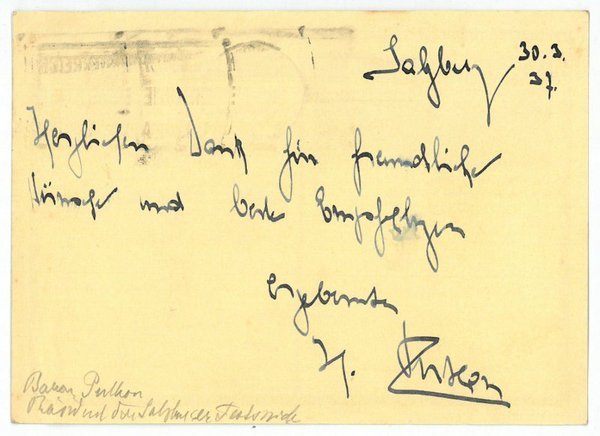 Salzburg 30.3.
37.
Herzlichen Dank für freundliche
Wünsche und beste Empfehlungen
Ergebenster
H.
Baron Puthon
Präsident der Salzburger Festspiele